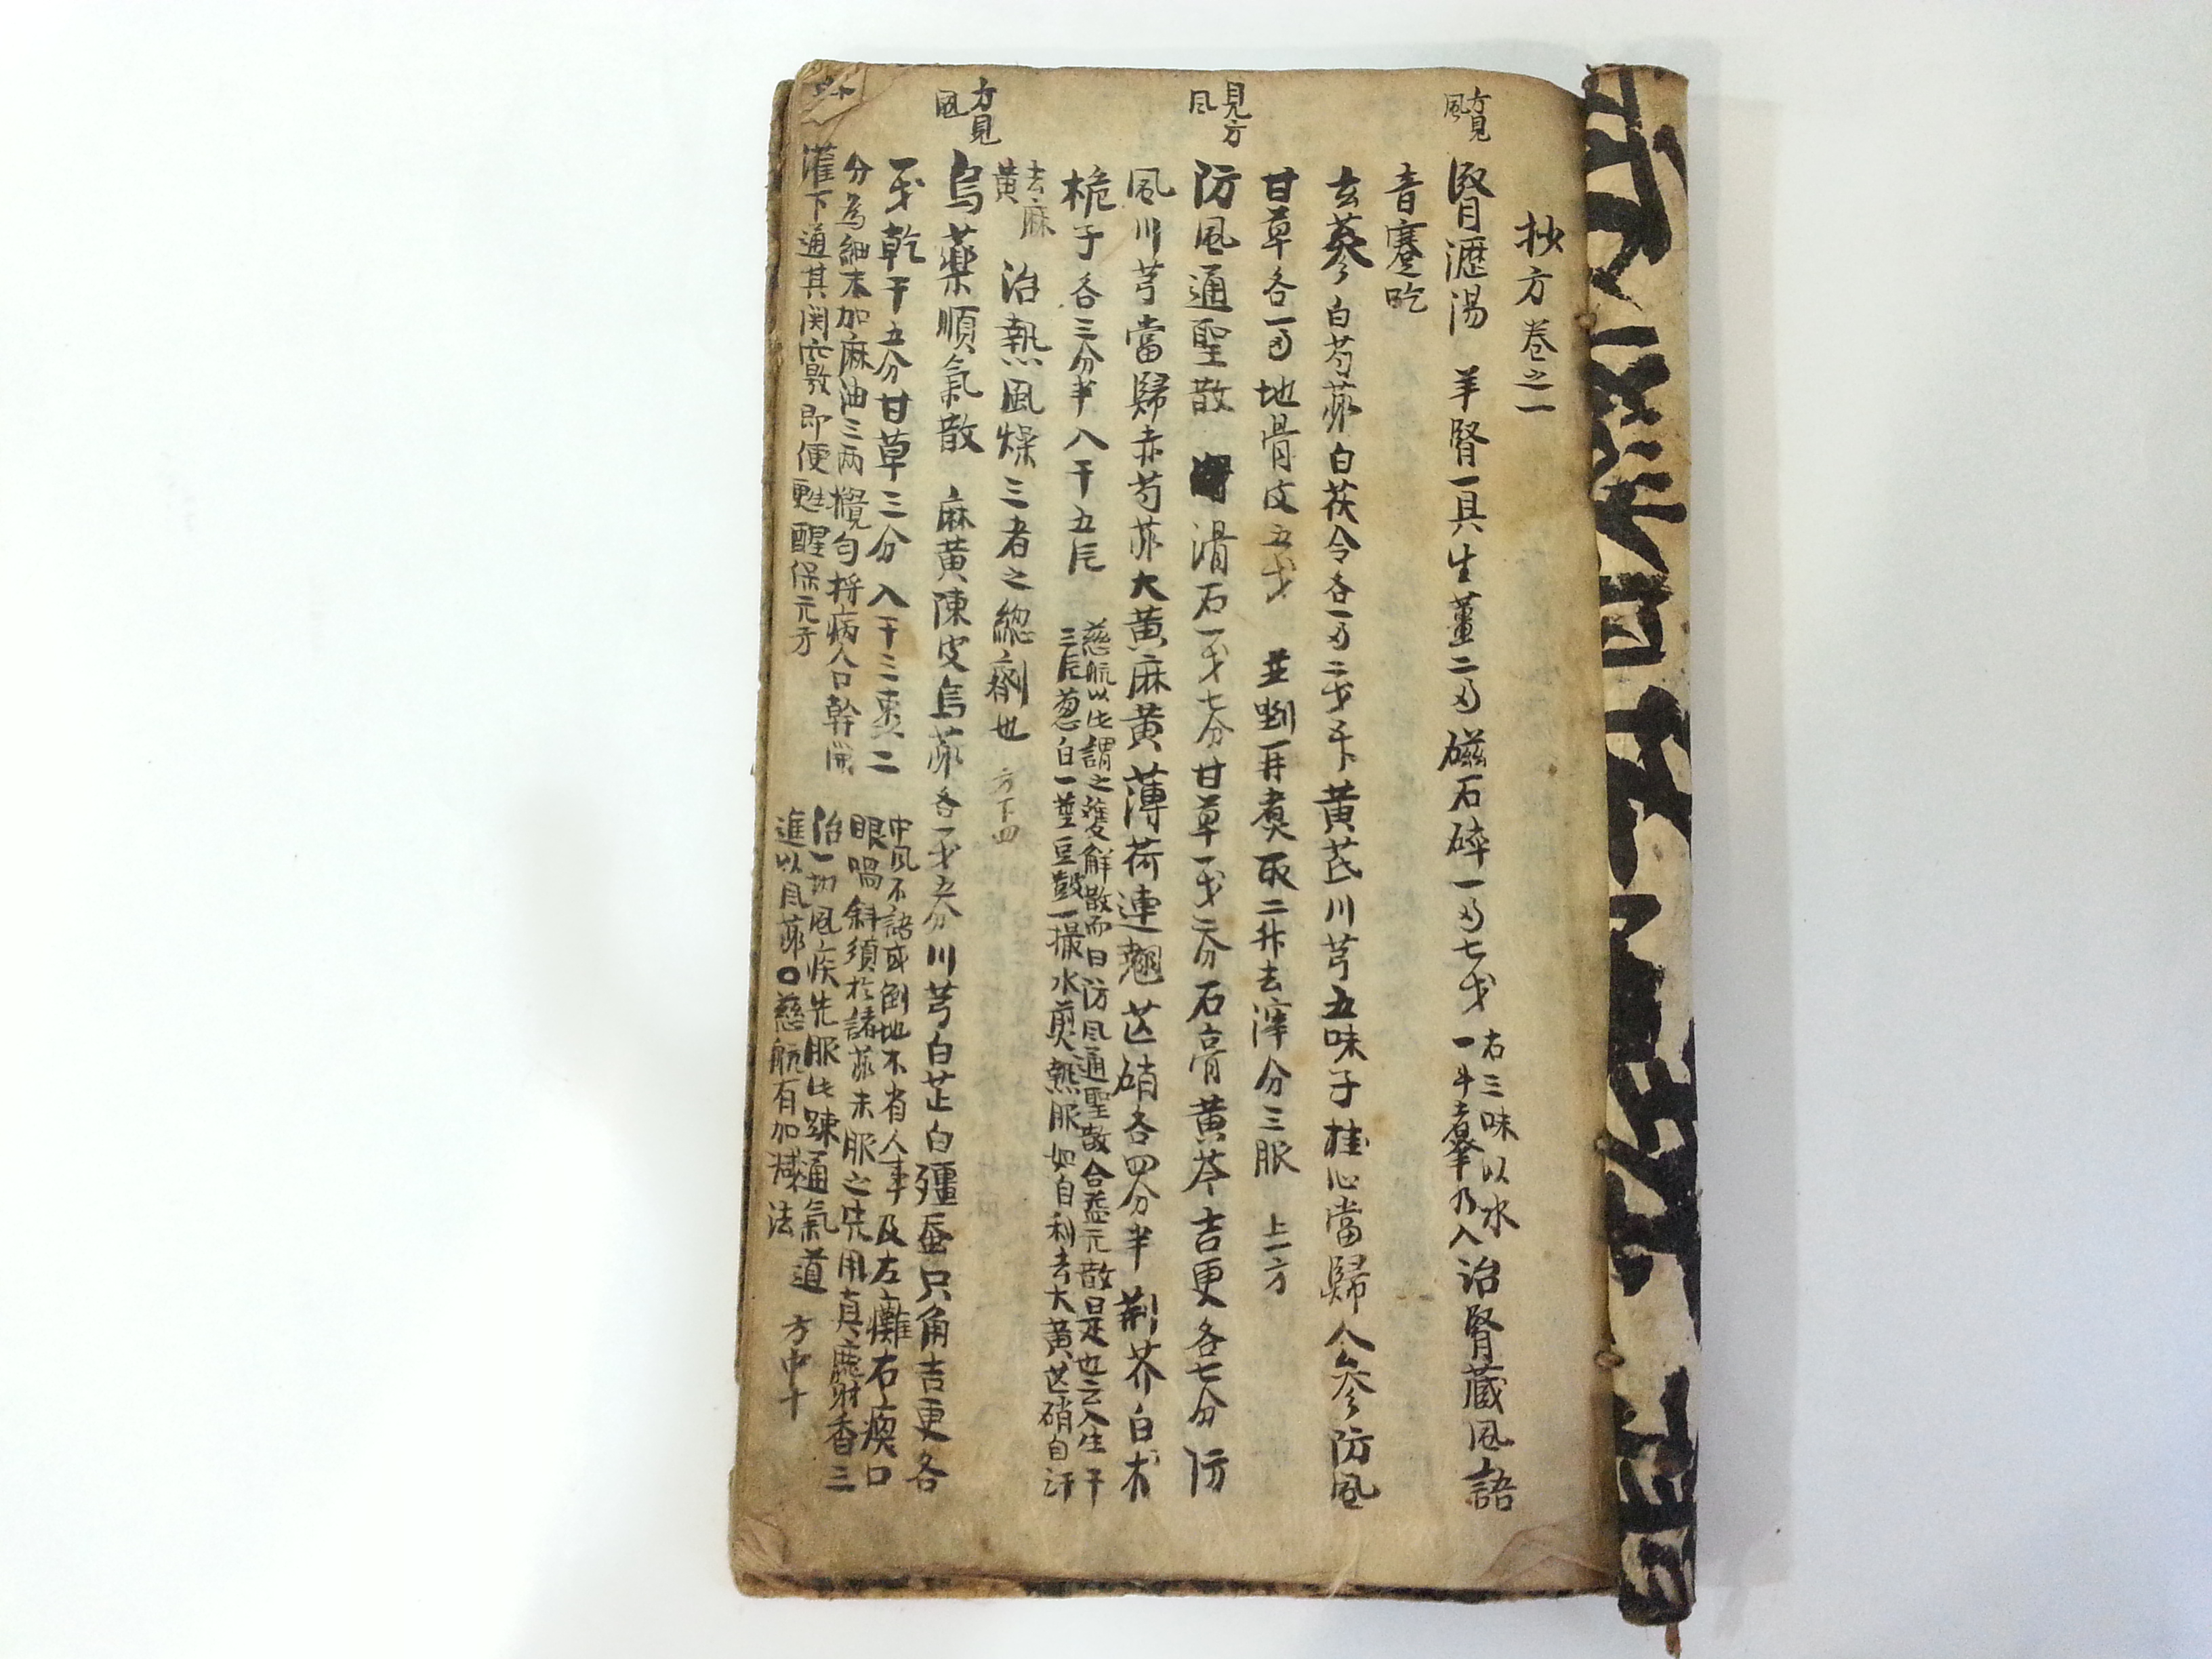 抄方 卷之一
方見
風
腎瀝湯 羊腎一具生薑二 磁石碎一 七
右三味以水
一斗煮 乃入
治腎蔵風語
音蹇吃
玄蔘白芍藥白茯令各一 二 半黄芪川芎五味子桂心當歸人參防風
甘草各一 地骨皮五 並剉再煑取二升去滓分三服 上方
見方
風
防風通聖散 滑石一 七分甘草一 二分石膏黄芩吉更各七分防
風川芎當歸赤芍藥大黄麻黄薄荷連翹芒硝各四分半荆芥白朮
桅子各三分半入干五片
慈航以此謂之雙解散而曰防風通聖散合益元散是也云入生干
三片葱白一莖豆豉一撮水煎熱服如自利去大黄芒硝自汗
去麻
黄
治熱風燥三者之總劑也 方下四
方見
風
烏藥順氣散 麻黄陳皮烏藥各一 五分川芎白芷白殭蚕只角吉更各
一 乾干五分甘草三分入干三棗二
中風不語或倒地不省人事及左癱右瘓口
眼喎斜須於諸藥未服之先用真麝香三
分為細末加麻油三兩攪匀將病人口幹開
灌下通其関竅即便甦醒保元方
治一切風疾先服此踈通氣道
進以風藥○慈航有加减法 方中十